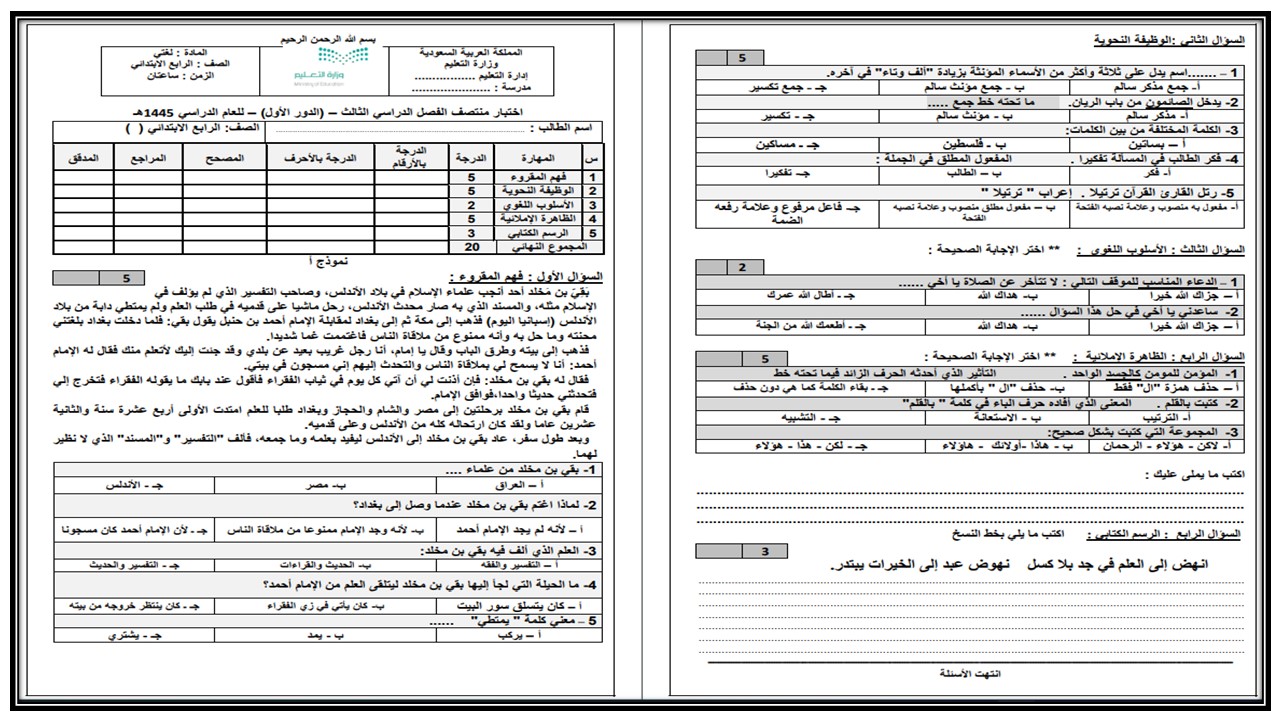 بسم الله الرحمن الرحيم
المملكة العربية السعودية
وزارة التعليم
إدارة التعليم ................
مدرسة : ......................
وزارة التعليم
Ministry of Education
المادة : لغتي
الصف : الرابع الابتدائي
الزمن : ساعتان
اختبار منتصف الفصل الدراسي الثالث – (الدور الأول) – للعام الدراسي 1445هـ
اسم الطالب : ............................ الصف: الرابع الابتدائي ( )
س المهارة الدرجة الدرجة بالأرقام الدرجة بالأحرف المصحح المراجع المدقق
1 فهم المقروء 5
2 الوظيفة النحوية 5
3 الأسلوب اللغوي 2
4 الظاهرة الإملائية 5
5 الرسم الكتابي 3
المجموع النهائي 20
نموذج أ
السؤال الأول : فهم المقروء : 5
بَقيّ بن مَخلد أحد أنجب علماء الإسلام في بلاد الأندلس، وصاحب التفسير الذي لم يؤلف في
الإسلام مثله، والمسند الذي به صار محدث الأندلس، رحل ماشيا على قدميه في طلب العلم ولم يمتطي دابة من بلاد
الأندلس (إسبانيا اليوم) فذهب إلى مكة ثم إلى بغداد لمقابلة الإمام أحمد بن حنبل يقول بقي: فلما دخلت بغداد بلغتني
محنته وما حل به وأنه ممنوع من ملاقاة الناس فاغتممت غما شديدا.
فذهب إلى بيته وطرق الباب وقال يا إمام، أنا رجل غريب بعيد عن بلدي وقد جئت إليك لأتعلم منك فقال له الإمام
أحمد: أنا لا يسمح لي بملاقاة الناس والتحدث إليهم إني مسجون في بيتي.
فقال له بقي بن مخلد: فإن أذنت لي أن آتي كل يوم في ثياب الفقراء فأقول عند بابك ما يقوله الفقراء فتخرج إلي
فتحدثني حديثا واحدا،فوافق الإمام.
قام بقي بن مخلد برحلتين إلى مصر والشام والحجاز وبغداد طلبا للعلم امتدت الأولى أربع عشرة سنة والثانية
عشرين عاما ولقد كان ارتحاله كله من الأندلس وعلى قدميه.
وبعد طول سفر، عاد بقي بن مخلد إلى الأندلس ليفيد بعلمه وما جمعه، فألف "التفسير" و"المسند" الذي لا نظير
لهما.
1- بقي بن مخلد من علماء ....
أ – العراق ب- مصر جـ - الأندلس
2- لماذا اغتم بقي بن مخلد عندما وصل إلى بغداد؟
أ – لأنه لم يجد الإمام أحمد ب- لأنه وجد الإمام ممنوعا من ملاقاة الناس جـ - لأن الإمام أحمد كان مسجونا
3- العلم الذي ألف فيه بقي بن مخلد:
أ – التفسير والفقه ب- الحديث والقراءات جـ - التفسير والحديث
4- ما الحيلة التي لجأ إليها بقي بن مخلد ليتلقى العلم من الإمام أحمد؟
أ – كان يتسلق سور البيت ب- كان يأتي في زي الفقراء جـ - كان ينتظر خروجه من بيته
5 – معنى كلمة " يمتطي" ......
أ – يركب ب - يمد جـ - يشتري
السؤال الثاني :الوظيفة النحوية
5
1 – .......اسم يدل على ثلاثة وأكثر من الأسماء المؤنثة بزيادة "ألف وتاء" في آخره.
أ- جمع مذكر سالم ب - جمع مؤنث سالم جـ - جمع تكسير
2- يدخل الصائمون من باب الريان. ما تحته خط جمع .....
أ- مذكر سالم ب - مؤنث سالم جـ - تكسير
3- الكلمة المختلفة من بين الكلمات:
أ – بساتين ب - فلسطين جـ - مساكين
4- فكر الطالب في المسألة تفكيرا . المفعول المطلق في الجملة :
أ- فكر ب – الطالب جـ- تفكيرا
5- رتل القارئ القرآن ترتيلا . إعراب " ترتيلا "
أ- مفعول به منصوب وعلامة نصبه الفتحة ب – مفعول مطلق منصوب وعلامة نصبه الفتحة جـ- فاعل مرفوع وعلامة رفعه الضمة
السؤال الثالث : الأسلوب اللغوي : ** اختر الإجابة الصحيحة :
2
1 – الدعاء المناسب للموقف التالي : لا تتأخر عن الصلاة يا أخي ......
أ – جزاك الله خيرا ب- هداك الله جـ - أطال الله عمرك
2- ساعدني يا أخي في حل هذا السؤال ......
أ – جزاك الله خيرا ب- هداك الله جـ - أطعمك الله من الجنة
السؤال الرابع : الظاهرة الإملائية : ** اختر الإجابة الصحيحة : 5
1- المؤمن للمومن كالجسد الواحد . التأثير الذي أحدثه الحرف الزائد فيما تحته خط
أ – حذف همزة "ال" فقط ب- حذف "ال " بأكملها جـ - بقاء الكلمة كما هي دون حذف
2- كتبت بالقلم . المعنى الذي أفاده حرف الباء في كلمة " بالقلم"
أ- الترتيب ب - الاستعانة جـ - التشبيه
3- المجموعة التي كتبت بشكل صحيح:
أ- لاكن - هؤلاء - الرحمان ب - هاذا -أولائك - هاؤلاء جـ - لكن - هذا - هؤلاء
اكتب ما يملى عليك :
السؤال الرابع : الرسم الكتابي : اكتب ما يلي بخط النسخ
3
انهض إلى العلم في جد بلا كسل نهوض عبد إلى الخيرات يبتدر.
انتهت الأسئلة